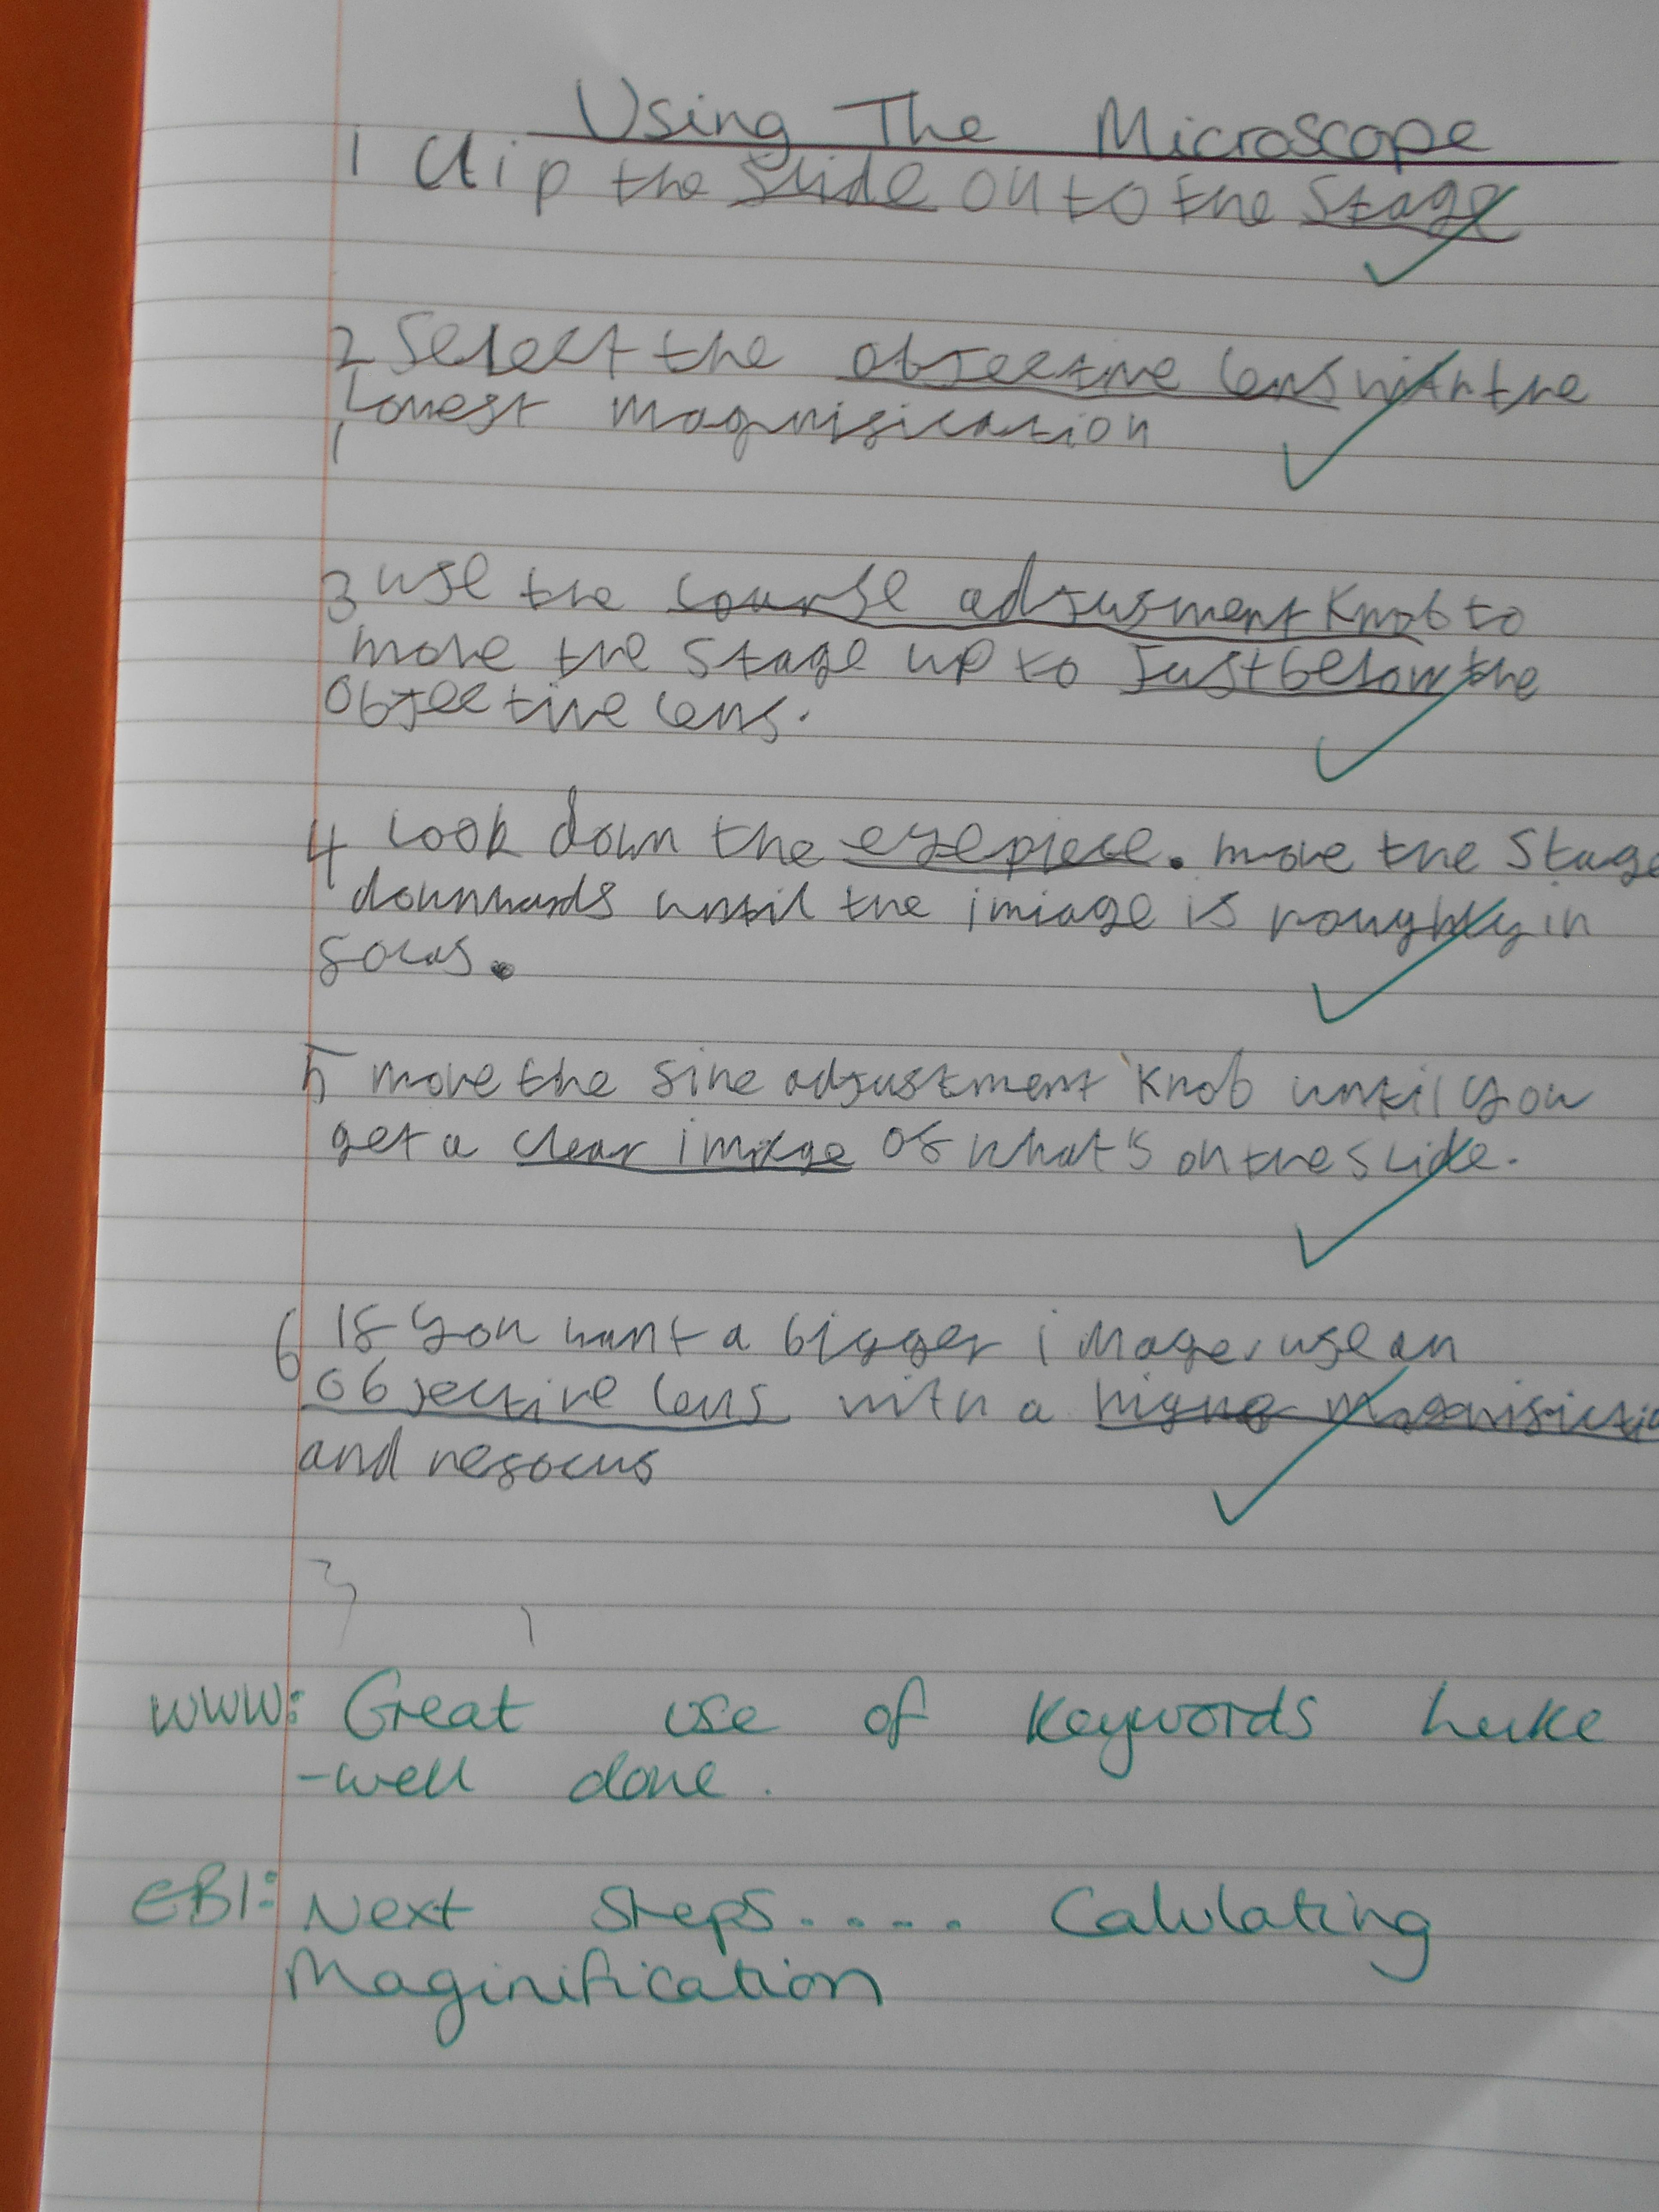 Using The Microscope
1 Clip the slide on to the stage
2 Select the objective lens with the
lowest magnification
3 use the course adjusment knob to
move the stage up to just below the
objective lens.
4 Look down the eyepiece. move the stage
downwards until the imiage is roughly in
focus.
5 move the fine adjustment knob until you
get a clear image of what's on the slide.
6 If you want a bigger image, use an
objective lens with a
and refocus
WWW: Great use of keywords Luke
- well done.
EBI: Next steps..... Calulating
Maginification